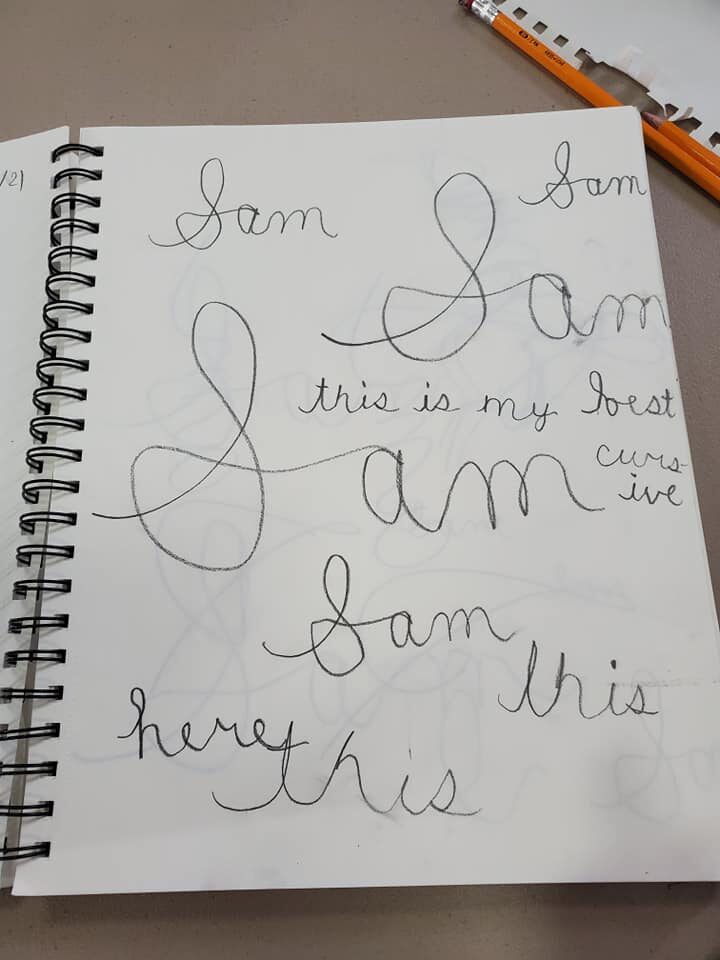 /21
Sam
Sam
Sam
this is my best
Sam
curs-
ive
Sam
this
here
this